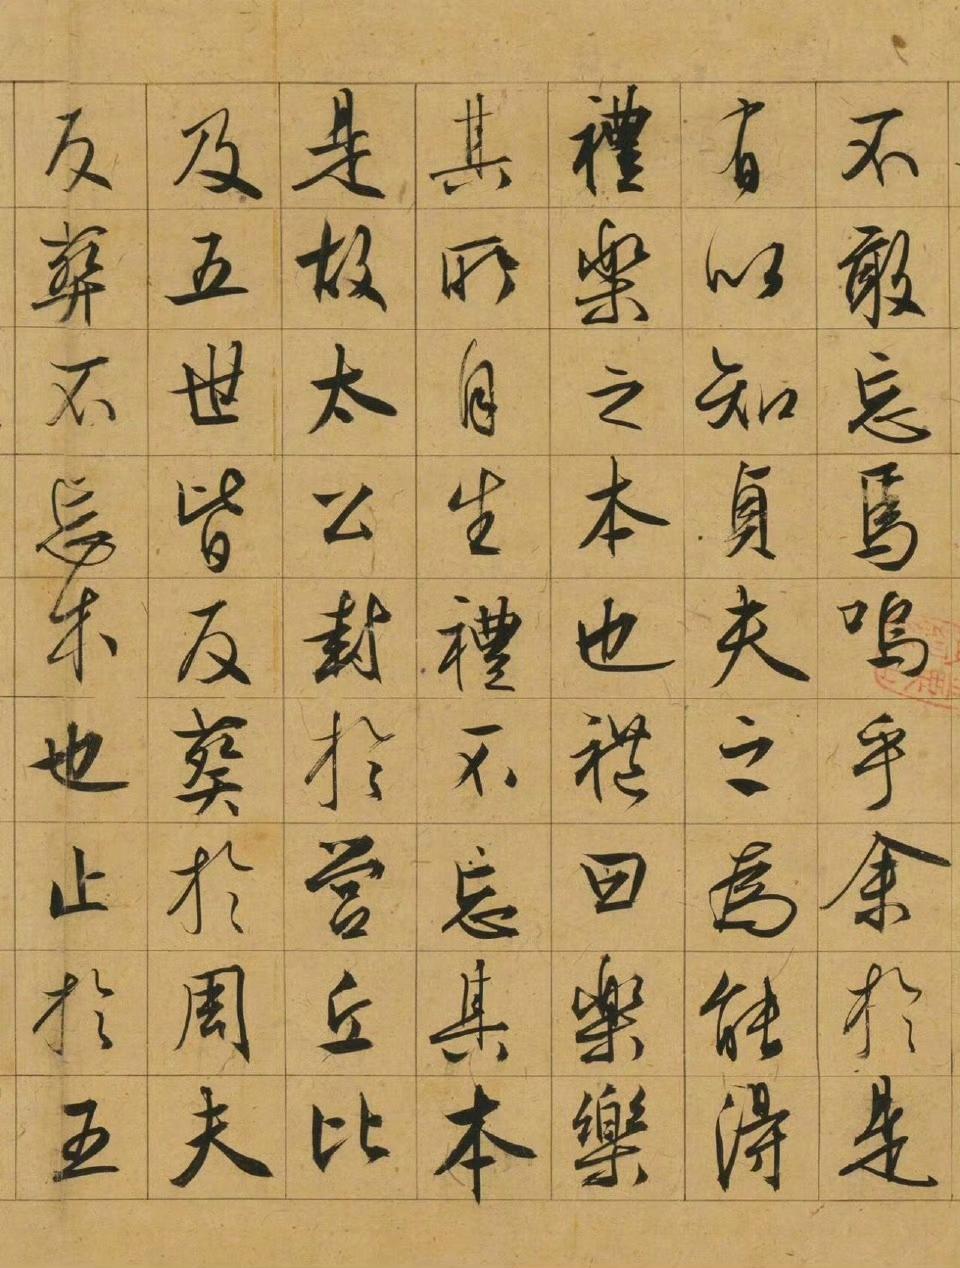 不敢忘焉嗚乎余於是
有以知貞夫之為能得
禮樂之本也禮曰樂樂
其所自生禮不忘其本
是故太公封於營丘比
及五世皆反葬於周夫
反葬不忘本也止於五